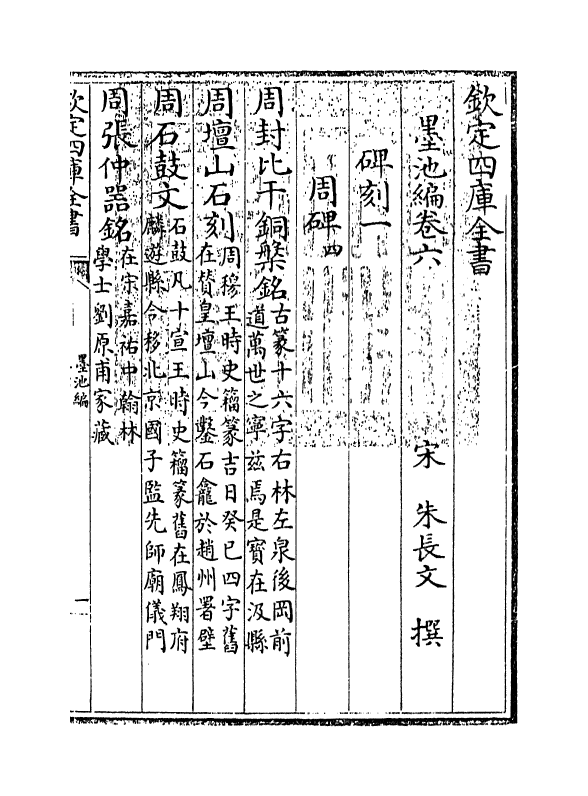 欽定四庫全書
墨池編卷六
宋 朱長文 撰
碑刻一
周碑四
周封比干銅槃銘古篆十六字右林左泉後岡前
道萬世之寧兹焉是寳在汲縣
周壇山石刻周穆王時史籀篆吉日癸巳四字舊
在賛皇壇山今鑿石龕於趙州署壁
周石鼓文石鼓凡十宣王時史籀篆舊在鳳翔府
麟遊縣今移北京國子監先師廟儀門
周張仲器銘在宋嘉祐中翰林
學士劉原甫家藏
欽定四庫全書
墨池編
一